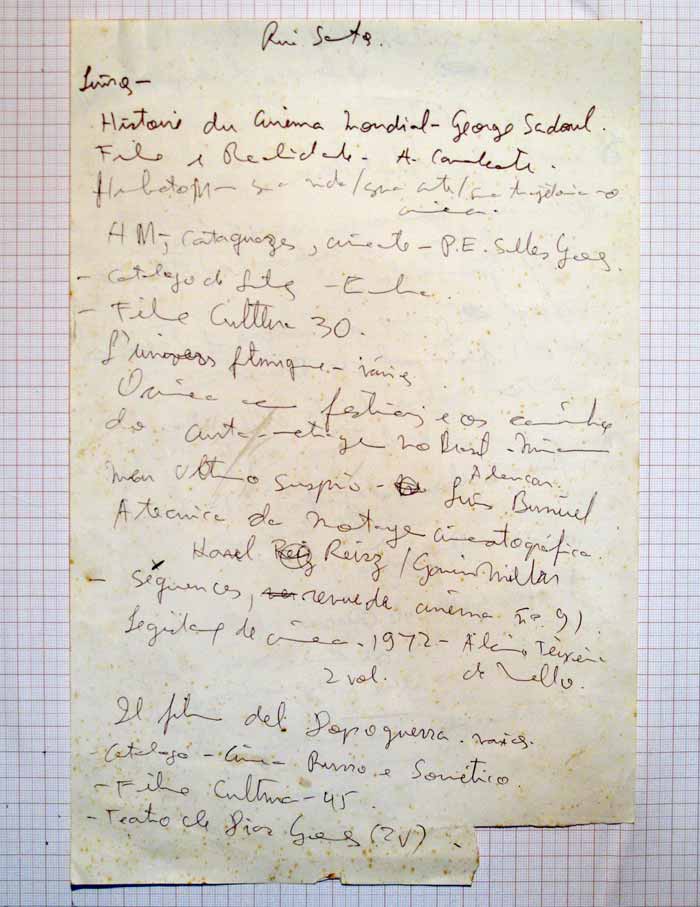 Rui Santos.
Livros -
Histoire du Cinema Mondial - George Sadoul.
Filme e Realidade - A. Cavalcanti.
Humberto M - sua vida/sua arte/sua trajetória no
cinema.
HM, Cataguazes, cinearte - P.E. Salles Gomes.
- Catalogo de filmes - Emb.
- Filme Cultura 30.
L'univers filmique - vários
O cinema em festivais e os caminhos
do curta-metragem no Brasil - Miriam
Alencar.
Meu Ultimo Suspiro - Luis Bunuel
A tecnica da montagem cinematográfica
Karel Reisz / Gavin Millar
- Séquences, revue de cinéma no. 91.
Legislação de cinema - 1972 - Alcino Teixeira
2 vol. de Mello.
Il film del Dopoguerra. varios.
- Catalogo - Cinema Russo e Soviético
- Filme Cultura - 45.
- Teatro de Dias Gomes (2v).